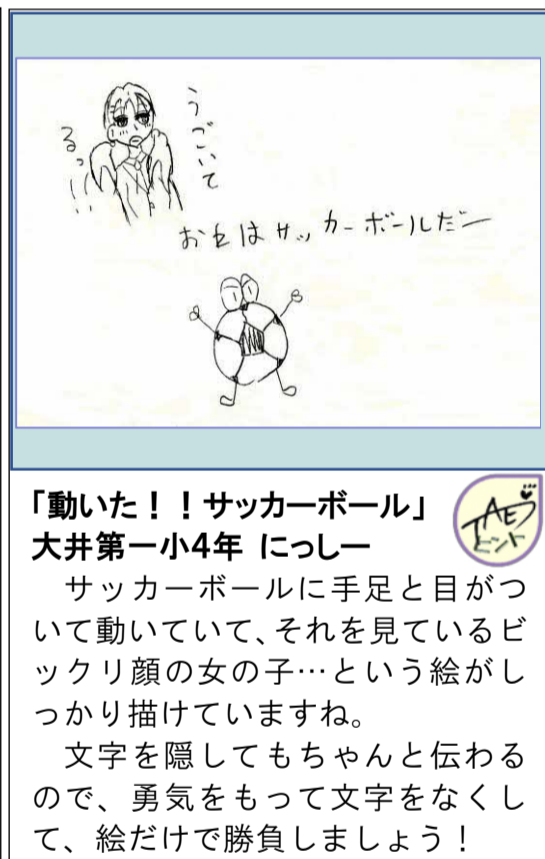 うごいて
るっ!!
お it はサッカーボールだー
「動いた！！サッカーボール」
大井第一小4年 にっしー
TAEラ
ヒント
サッカーボールに手足と目がつ
いて動いていて、それを見ているビ
ックリ顔の女の子…という絵がし
っかり描けていますね。
文字を隠してもちゃんと伝わる
ので、勇気をもって文字をなくし
て、絵だけで勝負しましょう！